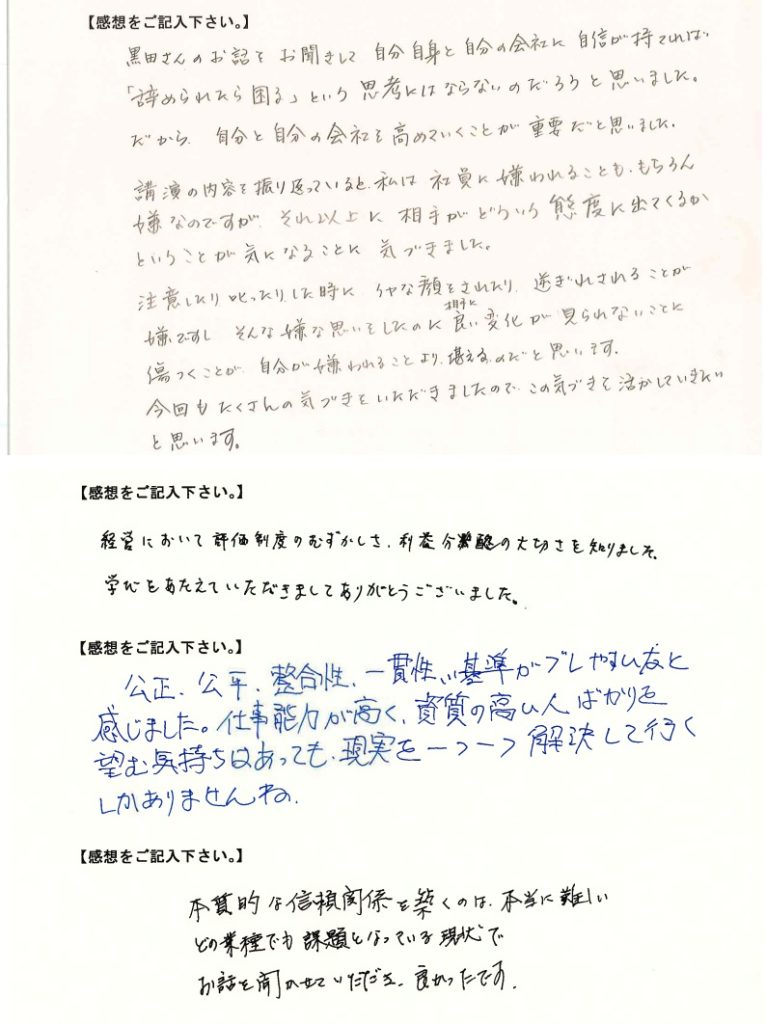 【感想をご記入下さい。】
黒田さんのお話をお聞きして 自分自身と自分の会社に自信が持てれば
「辞められたら困る」という思考にはならないのだろうと思いました。
だから、自分と自分の会社を高めていくことが重要だと思いました。
講演の内容を振り返っていると、私は社員に嫌われることも、もちろん
嫌なのですが、それ以上に 相手がどういう態度に出てくるか
ということが気になることに 気づきました。
注意したり叱ったりした時に イヤな顔をされたり、逆ぎれされることが
嫌ですし そんな嫌な思いをしたのに 相手に良い変化が見られないことに
傷つくことが、自分が嫌われることより、堪えるのだと思います。
今回もたくさんの気づきをいただきましたので、この気づきを活かしていきたい
と思います。
【感想をご記入下さい。】
経営において評価制度のむずかしさ、利益分配の大切さを知りました。
学びをあたえていただきましてありがとうございました。
【感想をご記入下さい。】
公正、公平、整合性、一貫性、基準がブレやすいなと
感じました。仕事能力が高く、資質の高い人ばかりを
望む気持ちはあっても、現実を一つ一つ解決して行く
しかありませんね。
【感想をご記入下さい。】
本質的な信頼関係を築くのは、本当に難しい
どの業種でも課題となっている現状で
お話を聞かせていただき、良かったです。